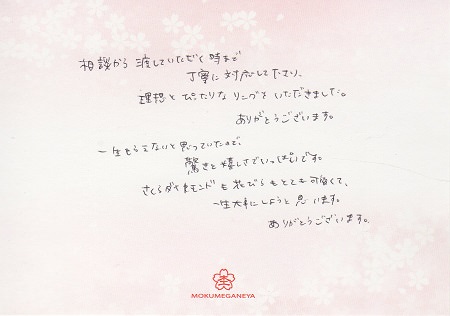 相談から渡していただく時まで
丁寧に対応して下さり、
理想とぴったりなリングをいただきました。
ありがとうございます。
一生もらえないと思っていたので、
驚きと嬉しさでいっぱいです。
さくらダイヤモンドも花びらもとても可愛くて、
一生大事にしようと思います。
ありがとうございます。
MOKUMEGANEYA